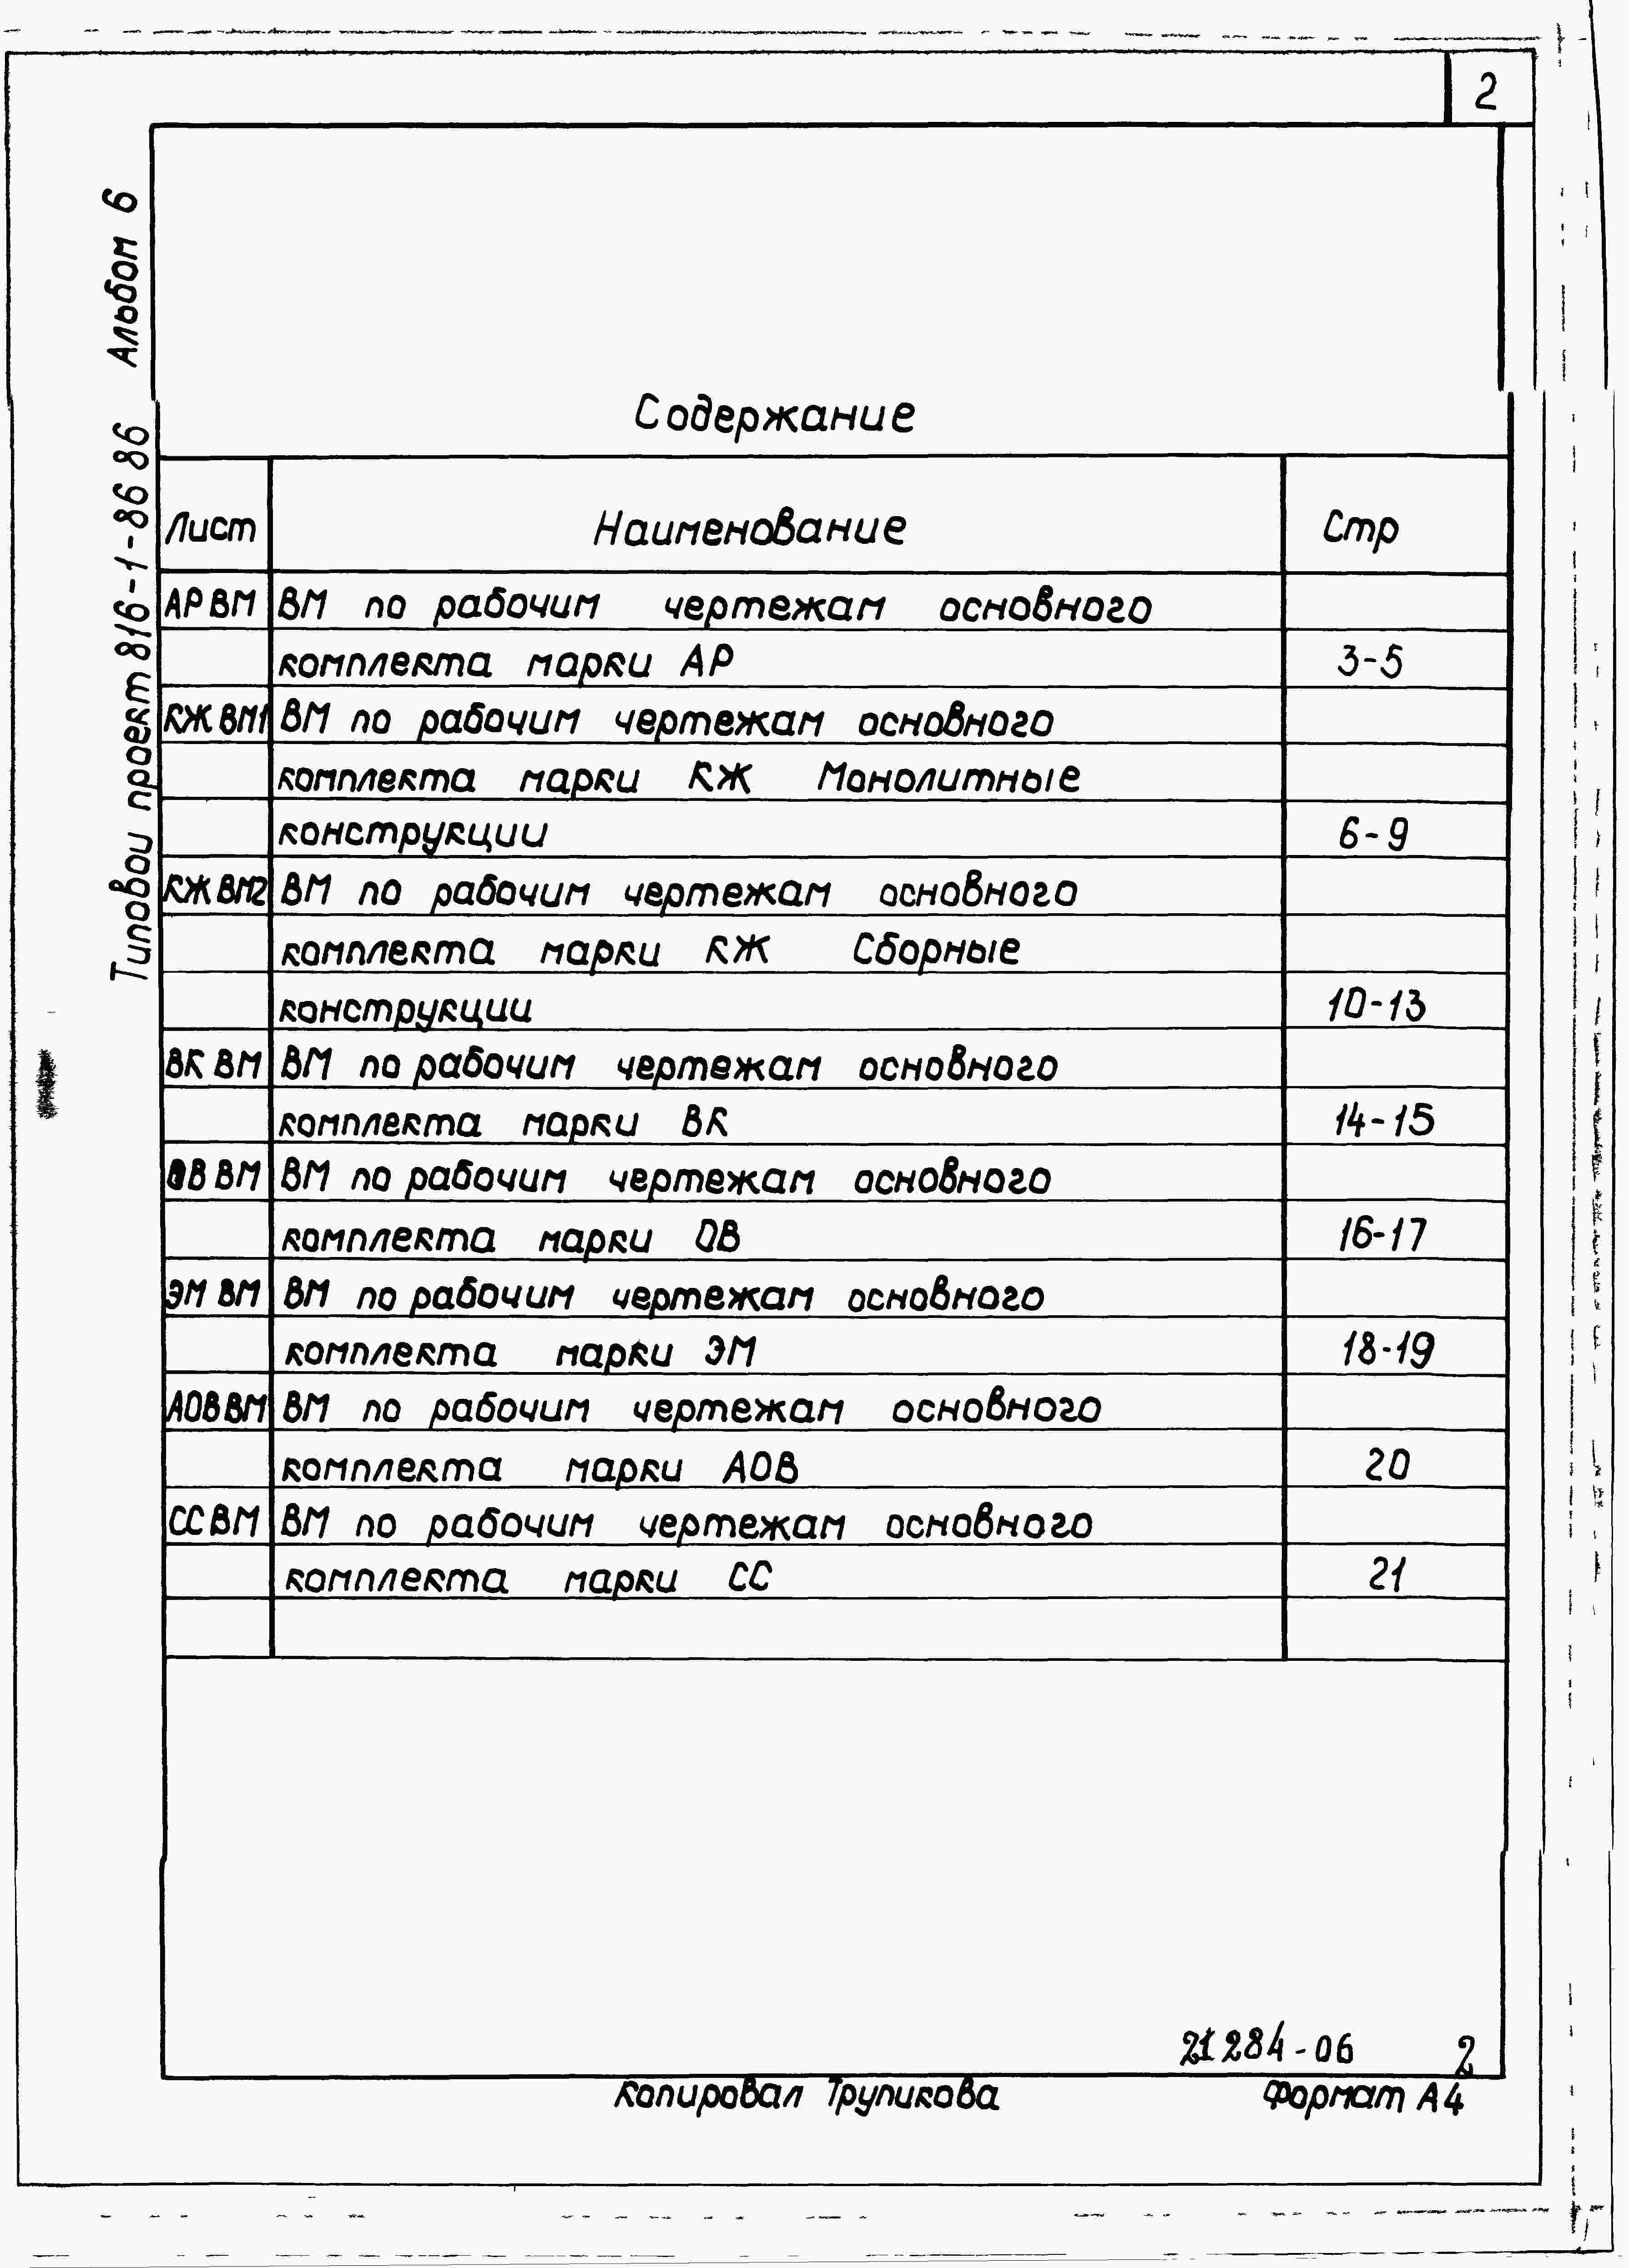 2
Альбом 6
Типовой проект 816-1-86 86
Содержание
Лист Наименование Стр
АР ВМ ВМ по рабочим чертежам основного
комплекта марки АР 3-5
КЖ ВМ1 ВМ по рабочим чертежам основного
комплекта марки КЖ Монолитные
конструкции 6-9
КЖ ВМ2 ВМ по рабочим чертежам основного
комплекта марки КЖ Сборные
конструкции 10-13
ВК ВМ ВМ по рабочим чертежам основного
комплекта марки ВК 14-15
ОВ ВМ ВМ по рабочим чертежам основного
комплекта марки ОВ 16-17
ЭМ ВМ ВМ по рабочим чертежам основного
комплекта марки ЭМ 18-19
АОВ ВМ ВМ по рабочим чертежам основного
комплекта марки АОВ 20
СС ВМ ВМ по рабочим чертежам основного
комплекта марки СС 21
21284-06 2
Копировал Трупикова Формат А4